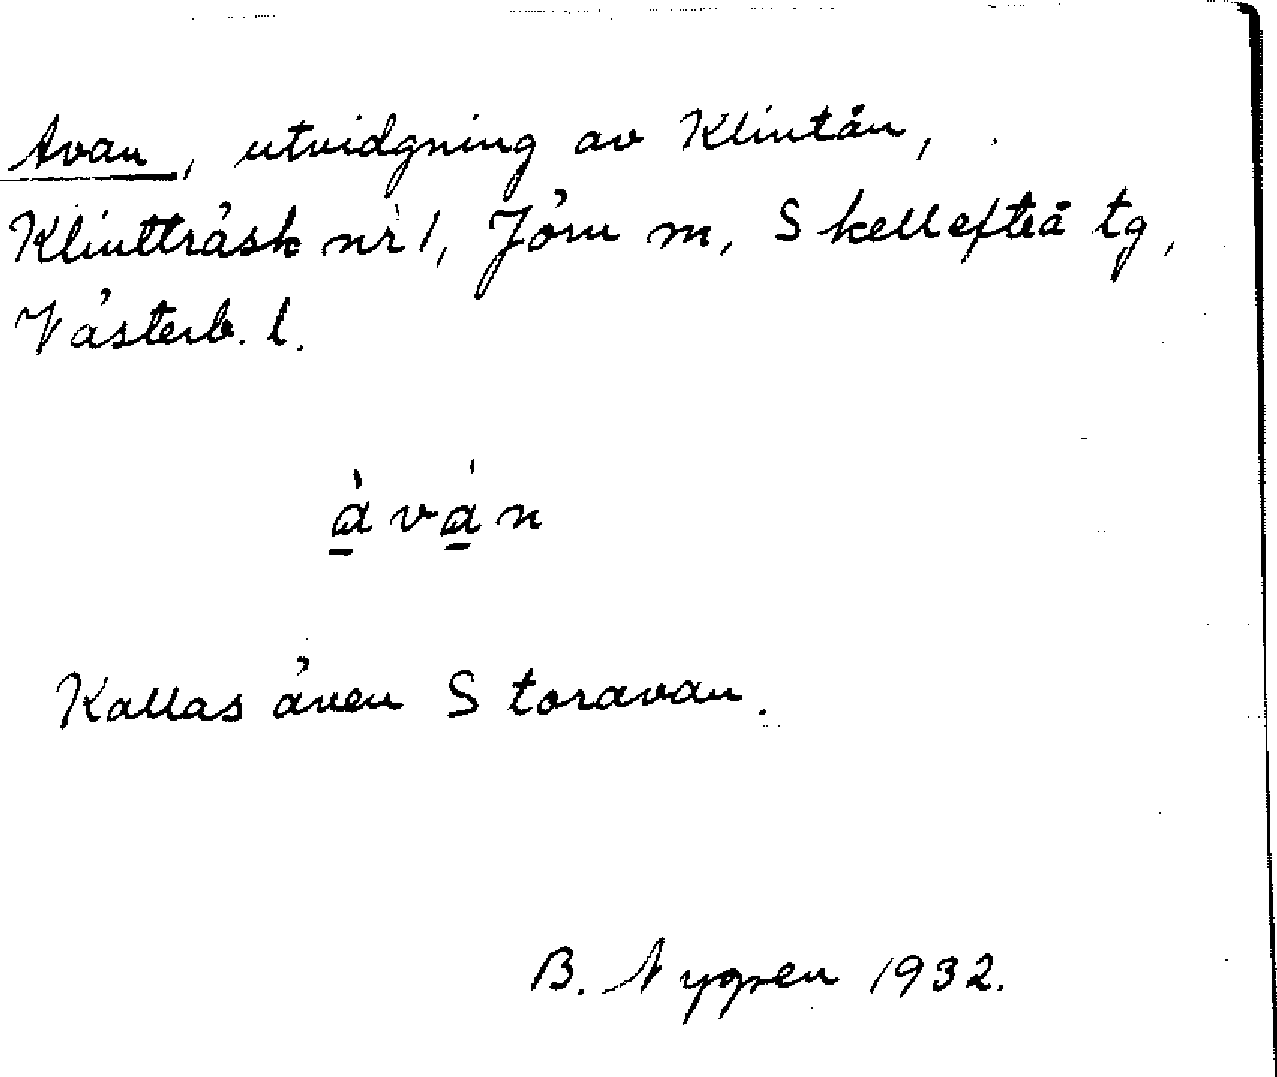 Avan, utvidgning av Klintån,
Klintträsk nr 1, Jörn m, Skellefteå tg,
Västerb. l.
à̱vá̱n
Kallas även Storavan.
B. Nygren 1932.